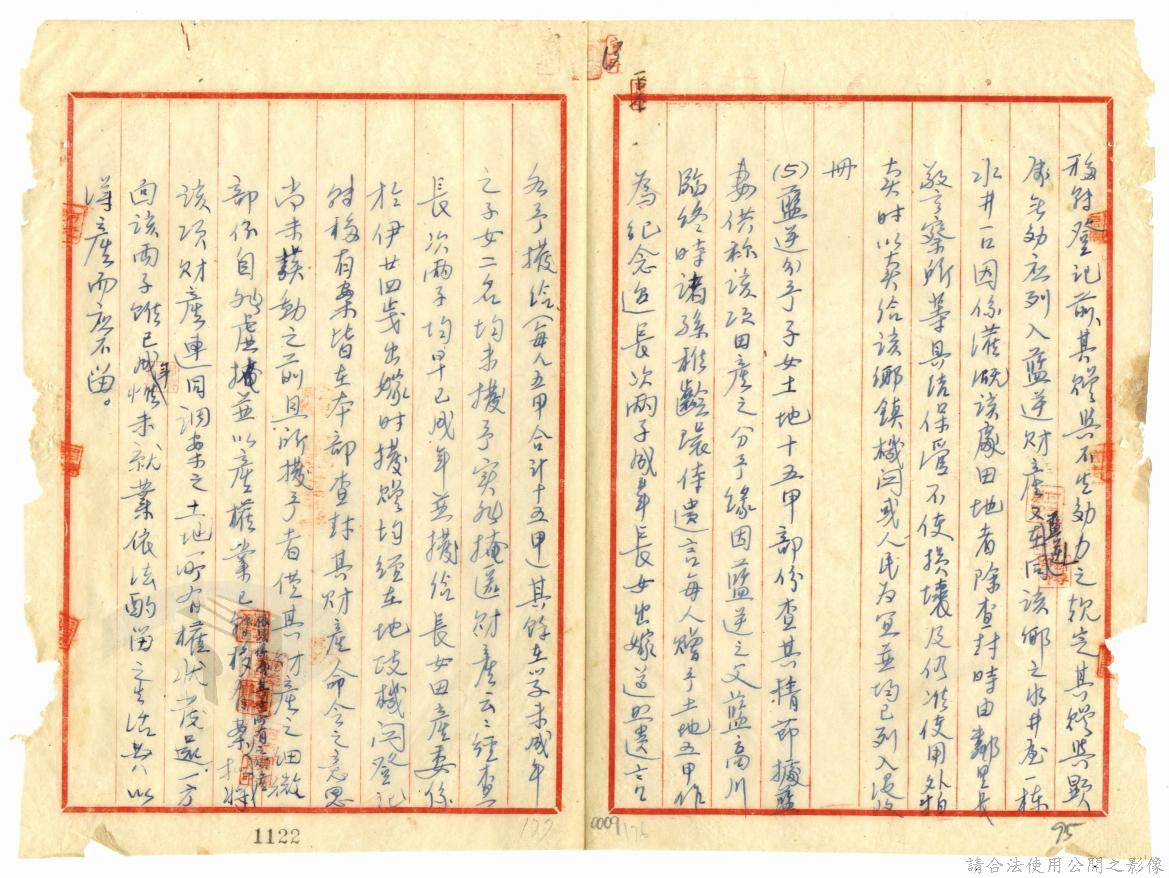 移財登記前其贈與不生効力之規定其贈與顯
屬無効應列入藍逆財產又藍逆在同該鄉之水井壹一棟
水井一口因係灌溉該處田地者除查封時由鄰里長
警察所等具結保管不使損壞及仍准使用外拍
賣時以賣給該鄉鎮機関或人民為宜並均已列入
冊
(5)藍逆分予子女土地十五甲部份查其情節據藍
妻供称該項田產之分予緣因藍逆之父藍高川
臨終時諸孫稚齡環侍遺言每人贈予土地五甲作
為紀念迨長次兩子成年長女出嫁遵照遺言
各予撥給(每人五甲合計十五甲)其餘在學未成年
之子女二名均未撥予実非掩匿財產云云經查
長次兩子均早已成年並撥給長女田產委係
於伊廿四歲出嫁時撥贈均經在地政機関登記
財移有案皆在本部查封其財產命令之意思
尚未發動之前且所撥予者僅其財產之細微
部份自非虛掩並以產權業已移有案
該項財產連同調案之土地所有權狀發還一方
面該兩子雖已成年惟未就業依法酌留之生活費以
得產而應不留。
1122
0009
95
請合法使用公開之影像